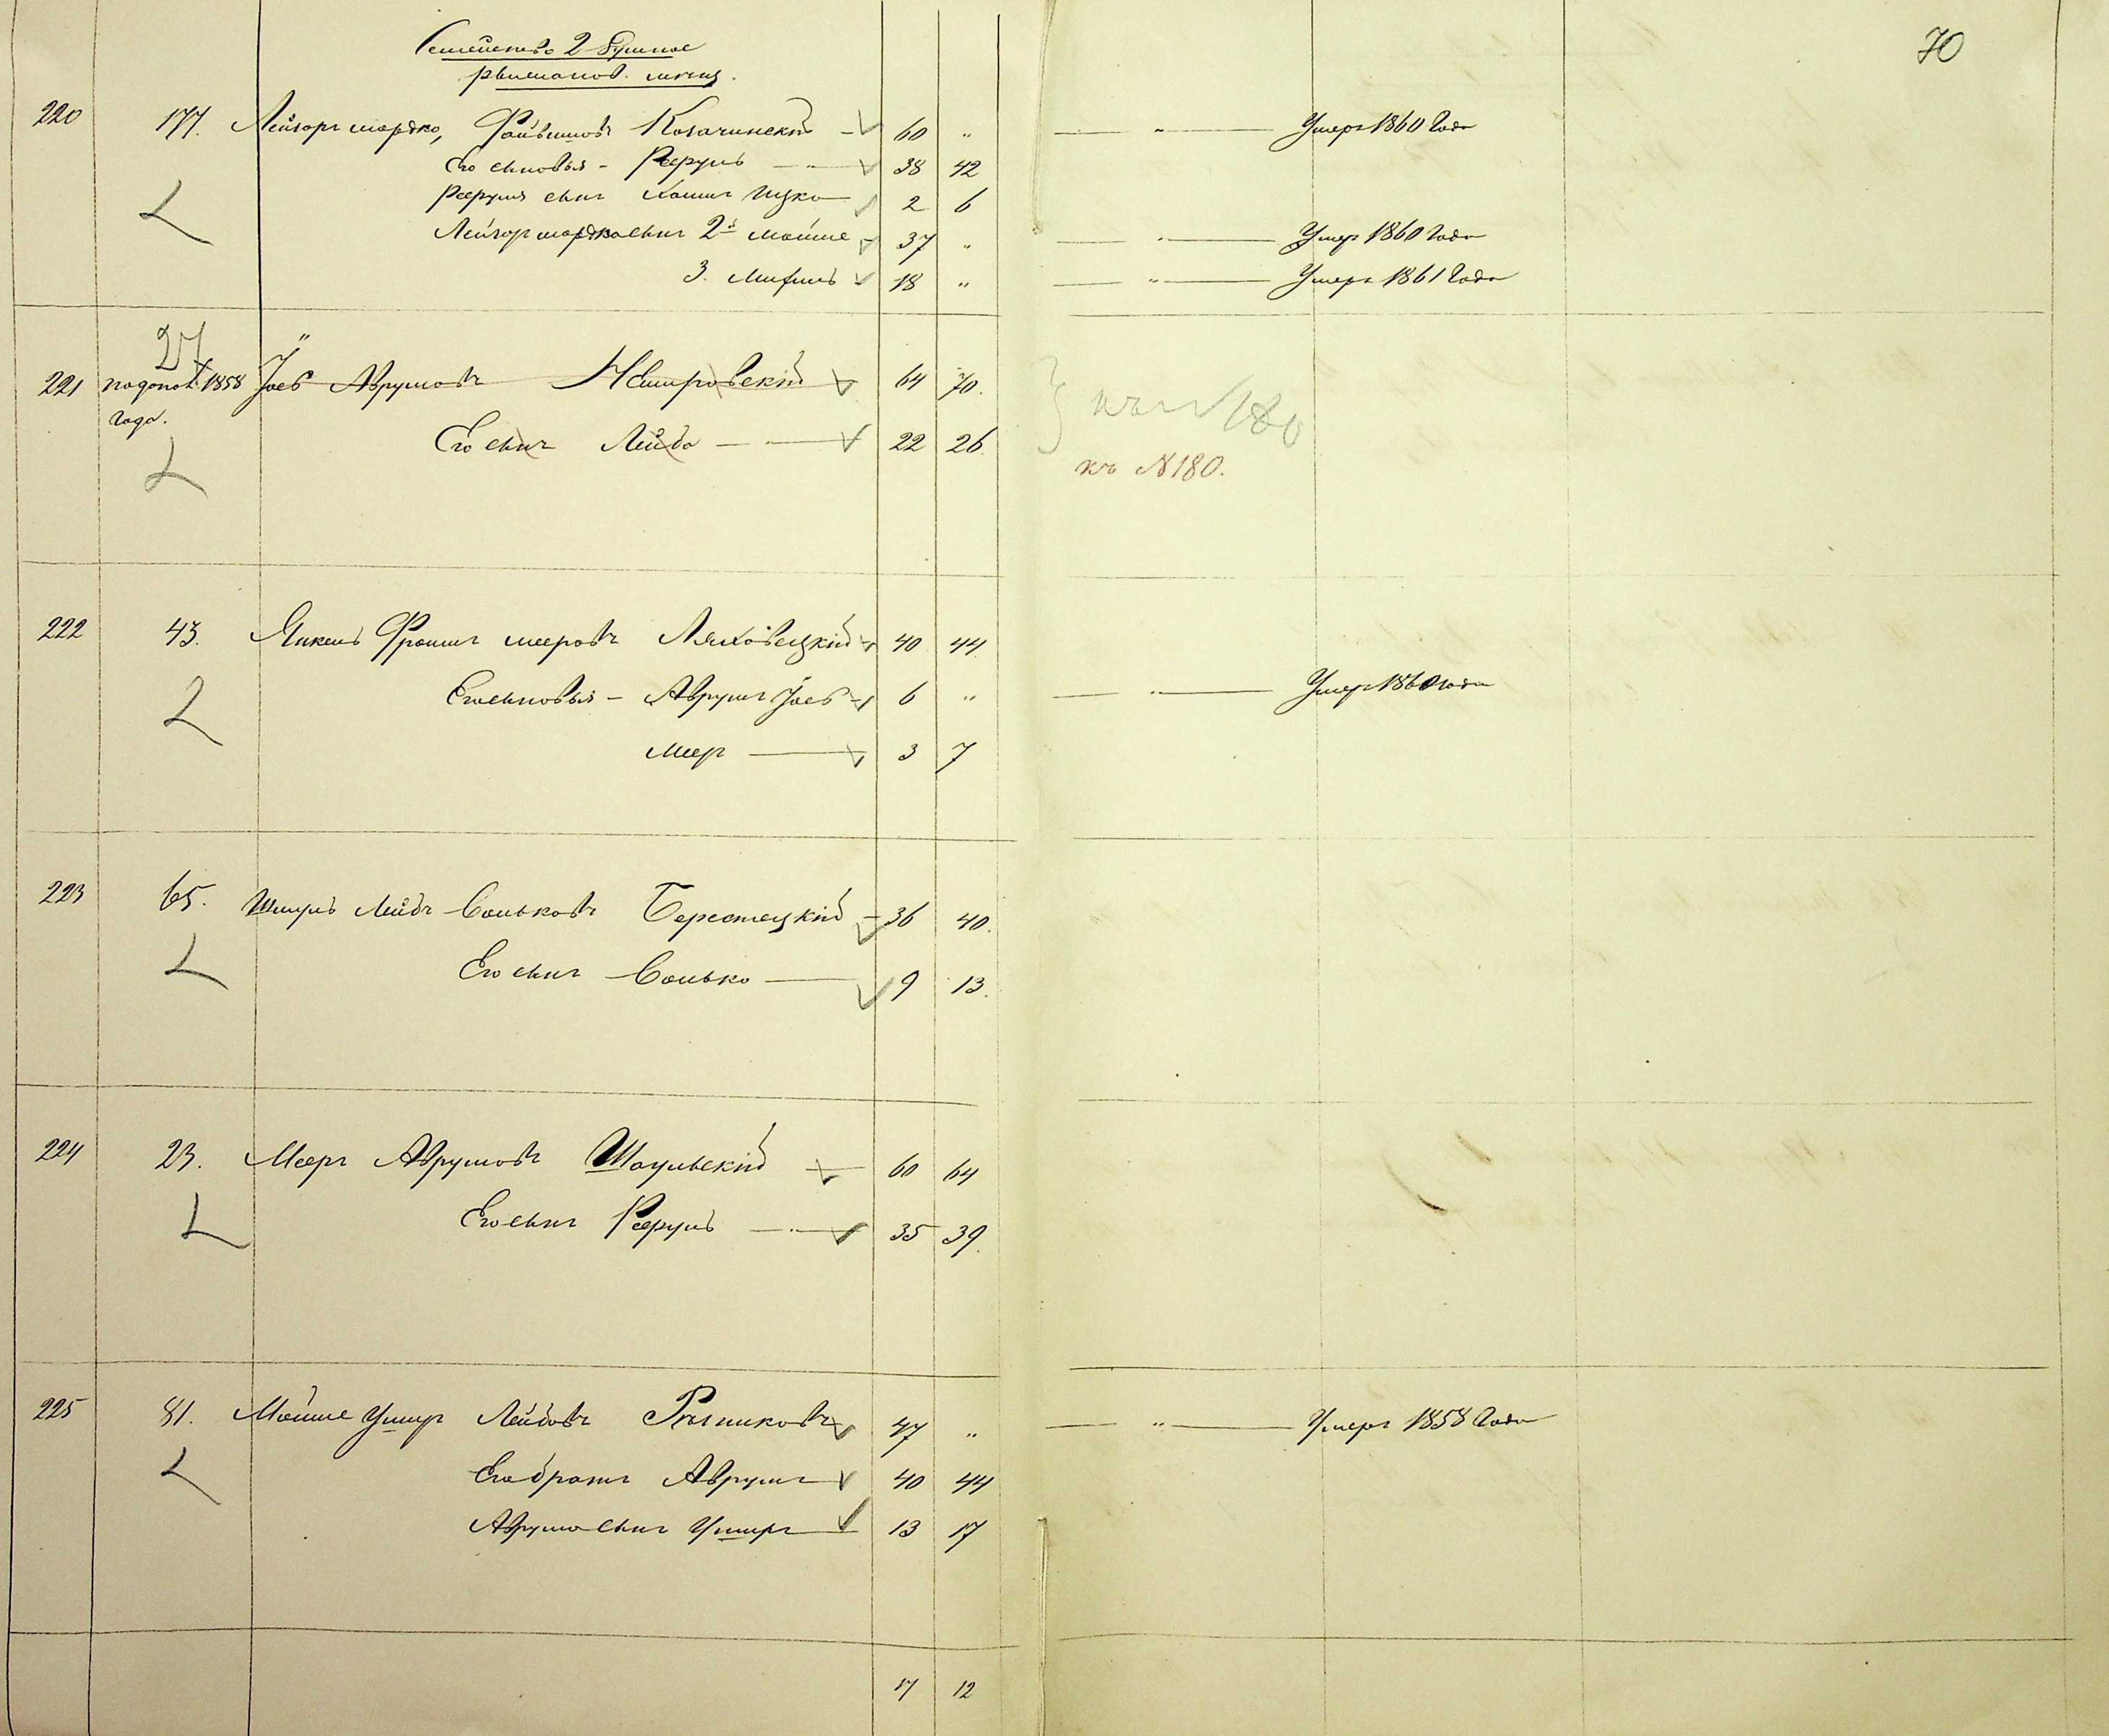 70
Семейство 2 душное
220 177. Лейзоръ Мордко, Файвишовъ Козачинскій 60 " — " — Умеръ 1860 Года
Его сыновья - Сруль — " — 38 42
Сруля сынъ Хаимъ Ицко 2 6
Лейзоръ Мордка сынъ 2й Мойше 37 " — " — Умеръ 1860 Года
3. 18 " — " — Умеръ 1861 Года
27
221 по допол. 1858 Года. Іосъ Аврумовъ Немировскій 64 70.
Его сынъ Лейба — " — 22 26. къ №180
къ №180.
222 43. Янкель Фроимъ Мееровъ Ляховецкій 40 44
Его сыновья - Аврумъ Іосъ 6 " — " — Умеръ 1860 года
Мееръ — 3 7
223 65. Шмуль Лейбъ Вольковъ Берестецкій - 36 40.
Его сынъ Волько — 9 13.
224 23. Мееръ Аврумовъ Шаульскій — 60 64
Его сынъ Сруль — " — 35 39.
225 81. Мойше Ушеръ Лейбовъ Резниковъ 47 " — " — Умеръ 1858 Года
Его братъ Аврумъ 40 44
Аврума сынъ Ушеръ 13 17
17 12